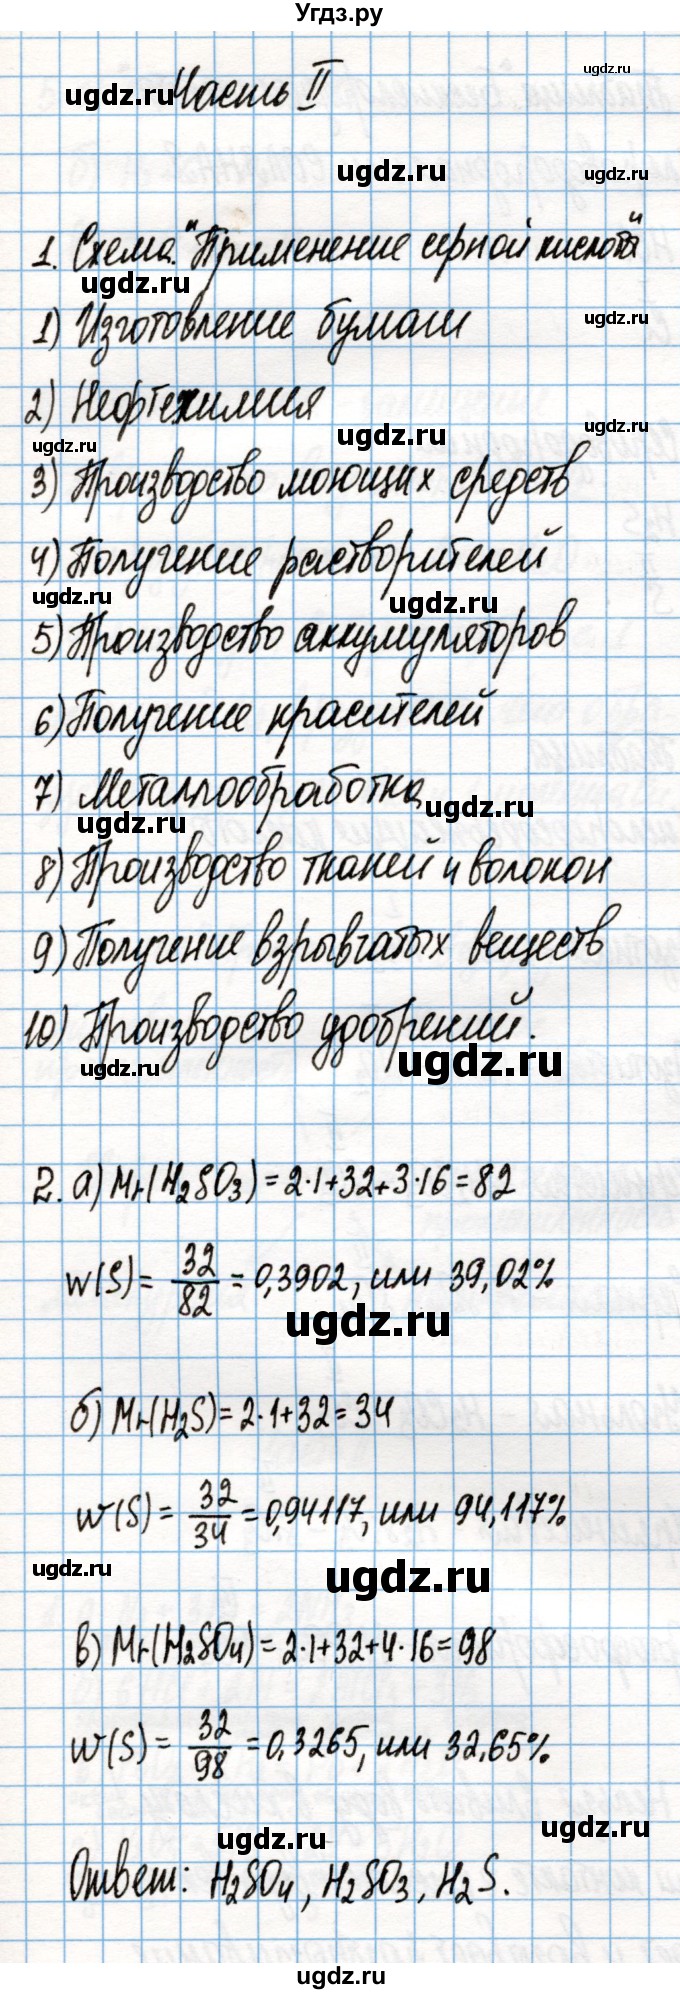 Угдз.ру
ugdz.ru
Часть II
ugdz.ru
ugdz.ru
ugdz.ru
1. Схема. "Применение серной кислоты"
ugdz.ru
1) Изготовление бумаги
ugdz.ru
ugdz.ru
2) Нефтехимия
ugdz.ru
ugdz.ru
ugdz.ru
3) Производство моющих средств
4) Получение растворителей
ugdz.ru
ugdz.ru
5) Производство аккумуляторов
6) Получение красителей
7) Металлообработка
ugdz.ru
ugdz.ru
8) Производство тканей и волокон
9) Получение взрывчатых веществ
10) Производство удобрений.
ugdz.ru
ugdz.ru
2. а) Mr(H2SO3) = 2·1+32+3·16=82
w(S) = 32/82 = 0,3902, или 39,02%
ugdz.ru
б) Mr(H2S) = 2·1+32=34
w(S) = 32/34 = 0,94117, или 94,117%
ugdz.ru
ugdz.ru
в) Mr(H2SO4) = 2·1+32+4·16=98
w(S) = 32/98 = 0,3265, или 32,65%
ugdz.ru
ugdz.ru
Ответ: H2SO4, H2SO3, H2S.
ugdz.ru